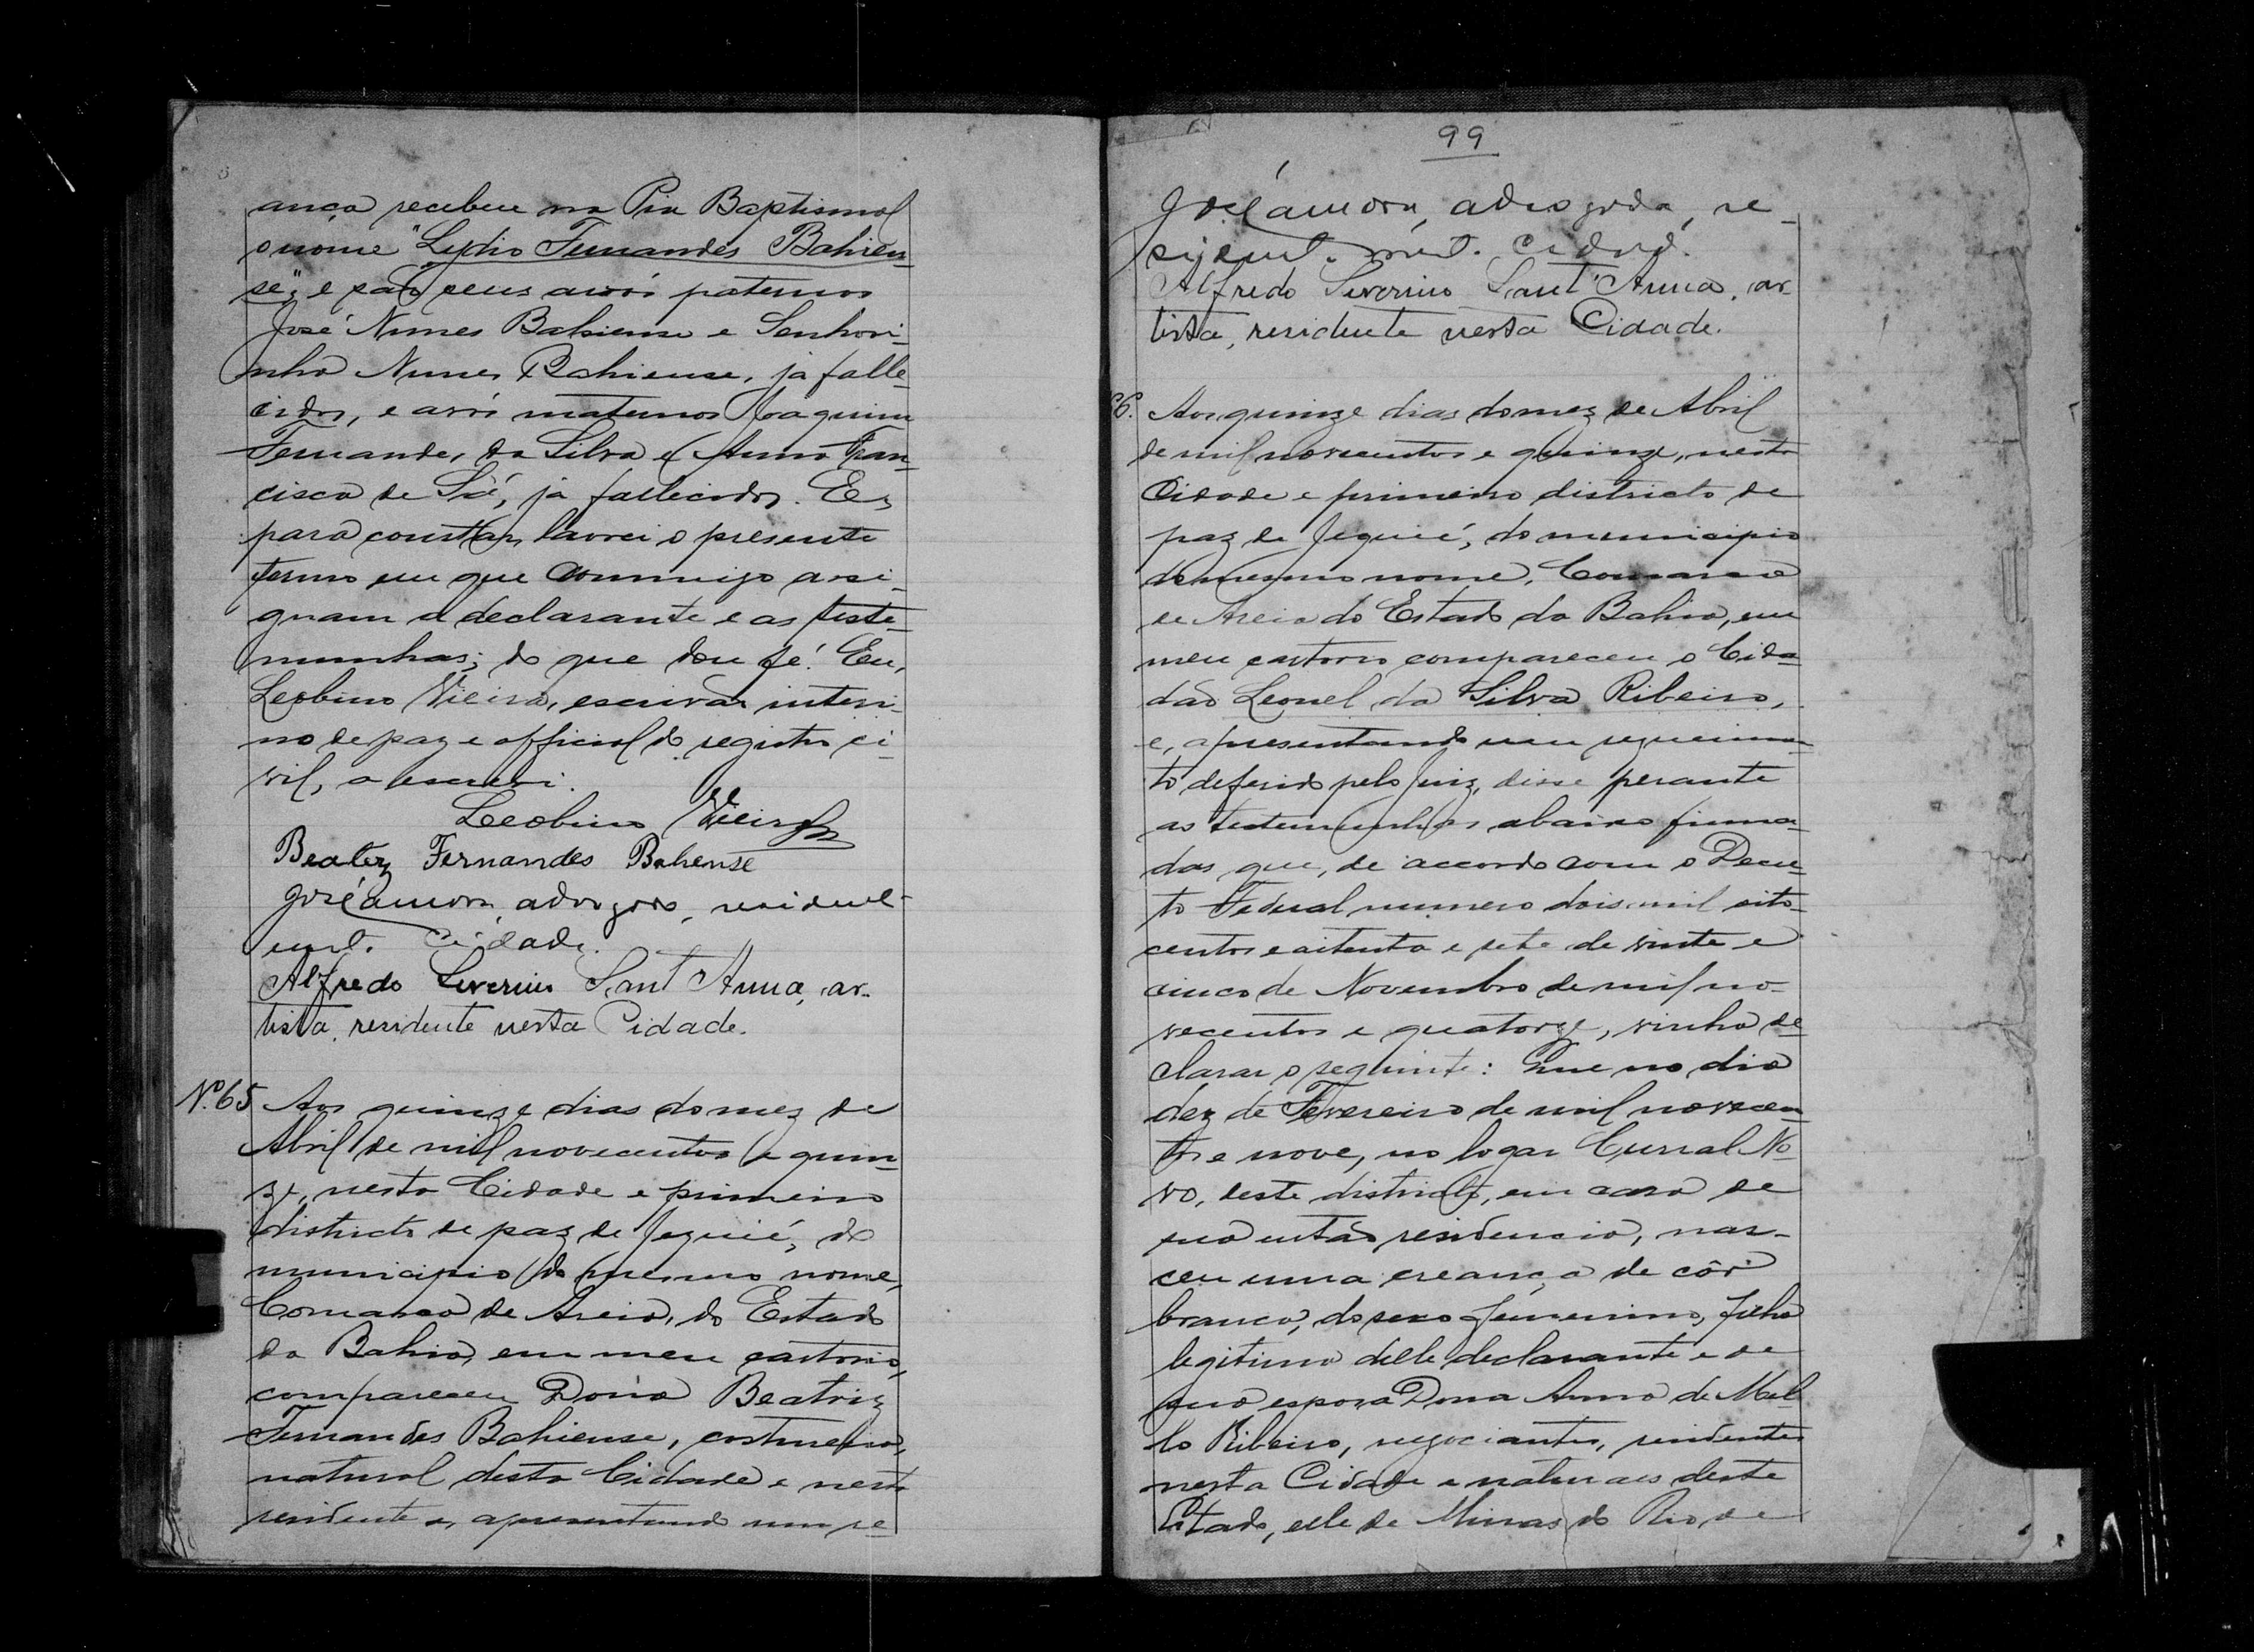 ança recebeu na Pia Baptismal
o nome "Lydio Fernandes Bahien-
se", e são seus avós paternos
José Nunes Bahiense e Senhori-
nha Nunes Bahiense, já falle-
cidos, e avós maternos Joaquim
Fernandes da Silva e Anna Fran-
cisca de Sá, já fallecidos. E,
para constar, lavrei o presente
termo em que commigo assi-
gnam a declarante e as teste-
munhas; do que dou fé. Eu,
Leobino Vieira, escrivão interi-
no de paz e official do registro ci-
vil, o escrevi.
Leobino Vieira
Beatriz Fernandes Bahense
José Amora, advogado, resident
nest. Cidade.
Alfredo Severino Sant'Anna, ar-
tista, residente nesta Cidade.
Nº 65 Aos quinze dias do mez de
Abril de mil novecentos e quin-
ze, nesta Cidade e primeiro
districto de paz de Jequié, do
municipio do mesmo nome,
Comarca de Areia, do Estado
da Bahia, em meu cartorio,
compareceu Dona Beatriz
Fernandes Bahiense, costureira,
natural desta Cidade e nesta
residente e, apresentando um re-
99
José Amora, advogado, re-
sident. nest. cidad.
Alfredo Severino Sant'Anna, ar-
tista, residente nesta Cidade.
66. Aos quinze dias do mez de Abril
de mil novecentos e quinze, nesta
Cidade e primeiro districto de
paz de Jequié, do municipio
do mesmo nome, Comarca
de Areia do Estado da Bahia, em
meu cartorio compareceu o Cida-
dão Leonel da Silva Ribeiro,
e, apresentando um requerimen-
to deferido pelo Juiz, disse perante
as testemunhas abaixo firma-
das que, de accordo com o Decre-
to Federal numero dois mil oito-
centos e oitenta e sete de vinte e
cinco de Novembro de mil no-
vecentos e quatorze, vinha de-
clarar o seguinte: Que no dia
dez de Fevereiro de mil novecen-
tos e nove, no logar Curral No-
vo, deste districto, em casa de
sua então residencia, nas-
ceu uma creança de côr
branca, do sexo femenino, filha
legitima delle declarante e de
sua esposa Dona Anna de Mel-
lo Ribeiro, negociantes, residentes
nesta Cidade e naturaes deste
Estado, elle de Minas do Rio de